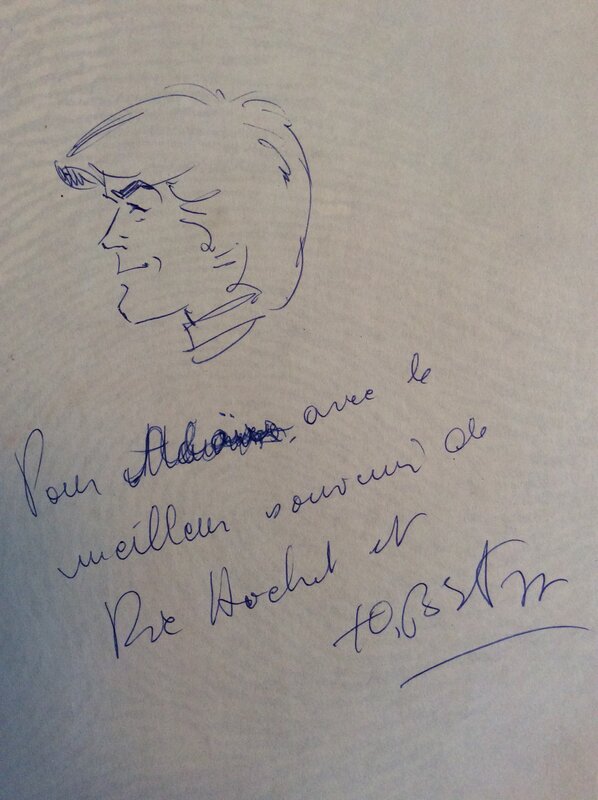 Pour avec le
meilleur souvenir de
Ric Hochet et
TIBET